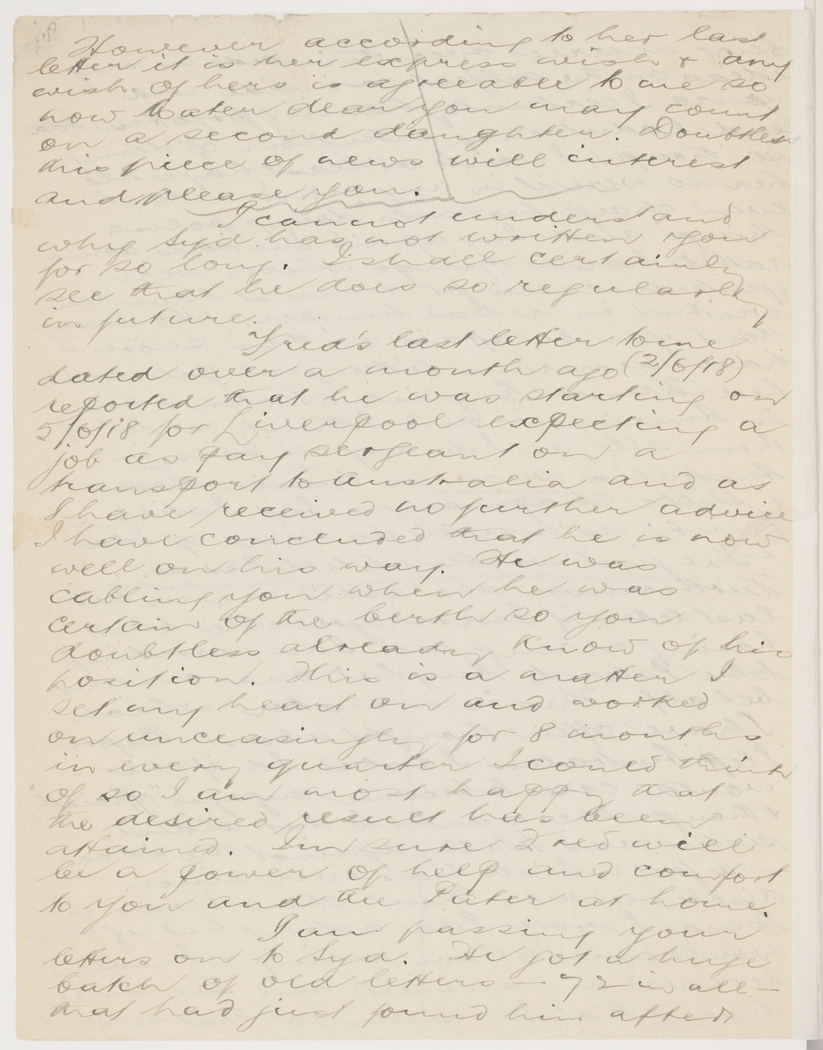 However according to her last
letter it is her express wish & any
wish of hers is agreeable to me so
now Mater dear you may count
on a second daughter. Doubtless
this piece of news will interest
and please you.
I cannot understand
why Syd. has not written you
for so long. I shall certainly
see that he does so regularly
in future.
Fred's last letter to me
dated over a month ago (2/6/18)
reported that he was starting on
5/6/18 for Liverpool expecting a
job as pay sergeant on a
transport to Australia and as
I have received no further advice
I have concluded that he is now
well on his way. He was
cabling you when he was
certain of the berth so you
doubtless already know of his
position. This is a matter I
set my heart on and worked
on unceasingly for 8 months
in every quarter I could think
of so I am most happy that
the desired result has been
attained. I'm sure Fred will
be a power of help and comfort
to you and the Pater at home.
I am passing your
letters on to Syd. He got a huge
batch of old letters – 72 in all –
that had just found him after